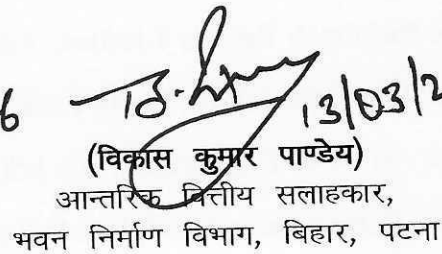 6 13/03/2
(विकास कुमार पाण्डेय)
आन्तरिक वित्तीय सलाहकार,
भवन निर्माण विभाग, बिहार, पटना